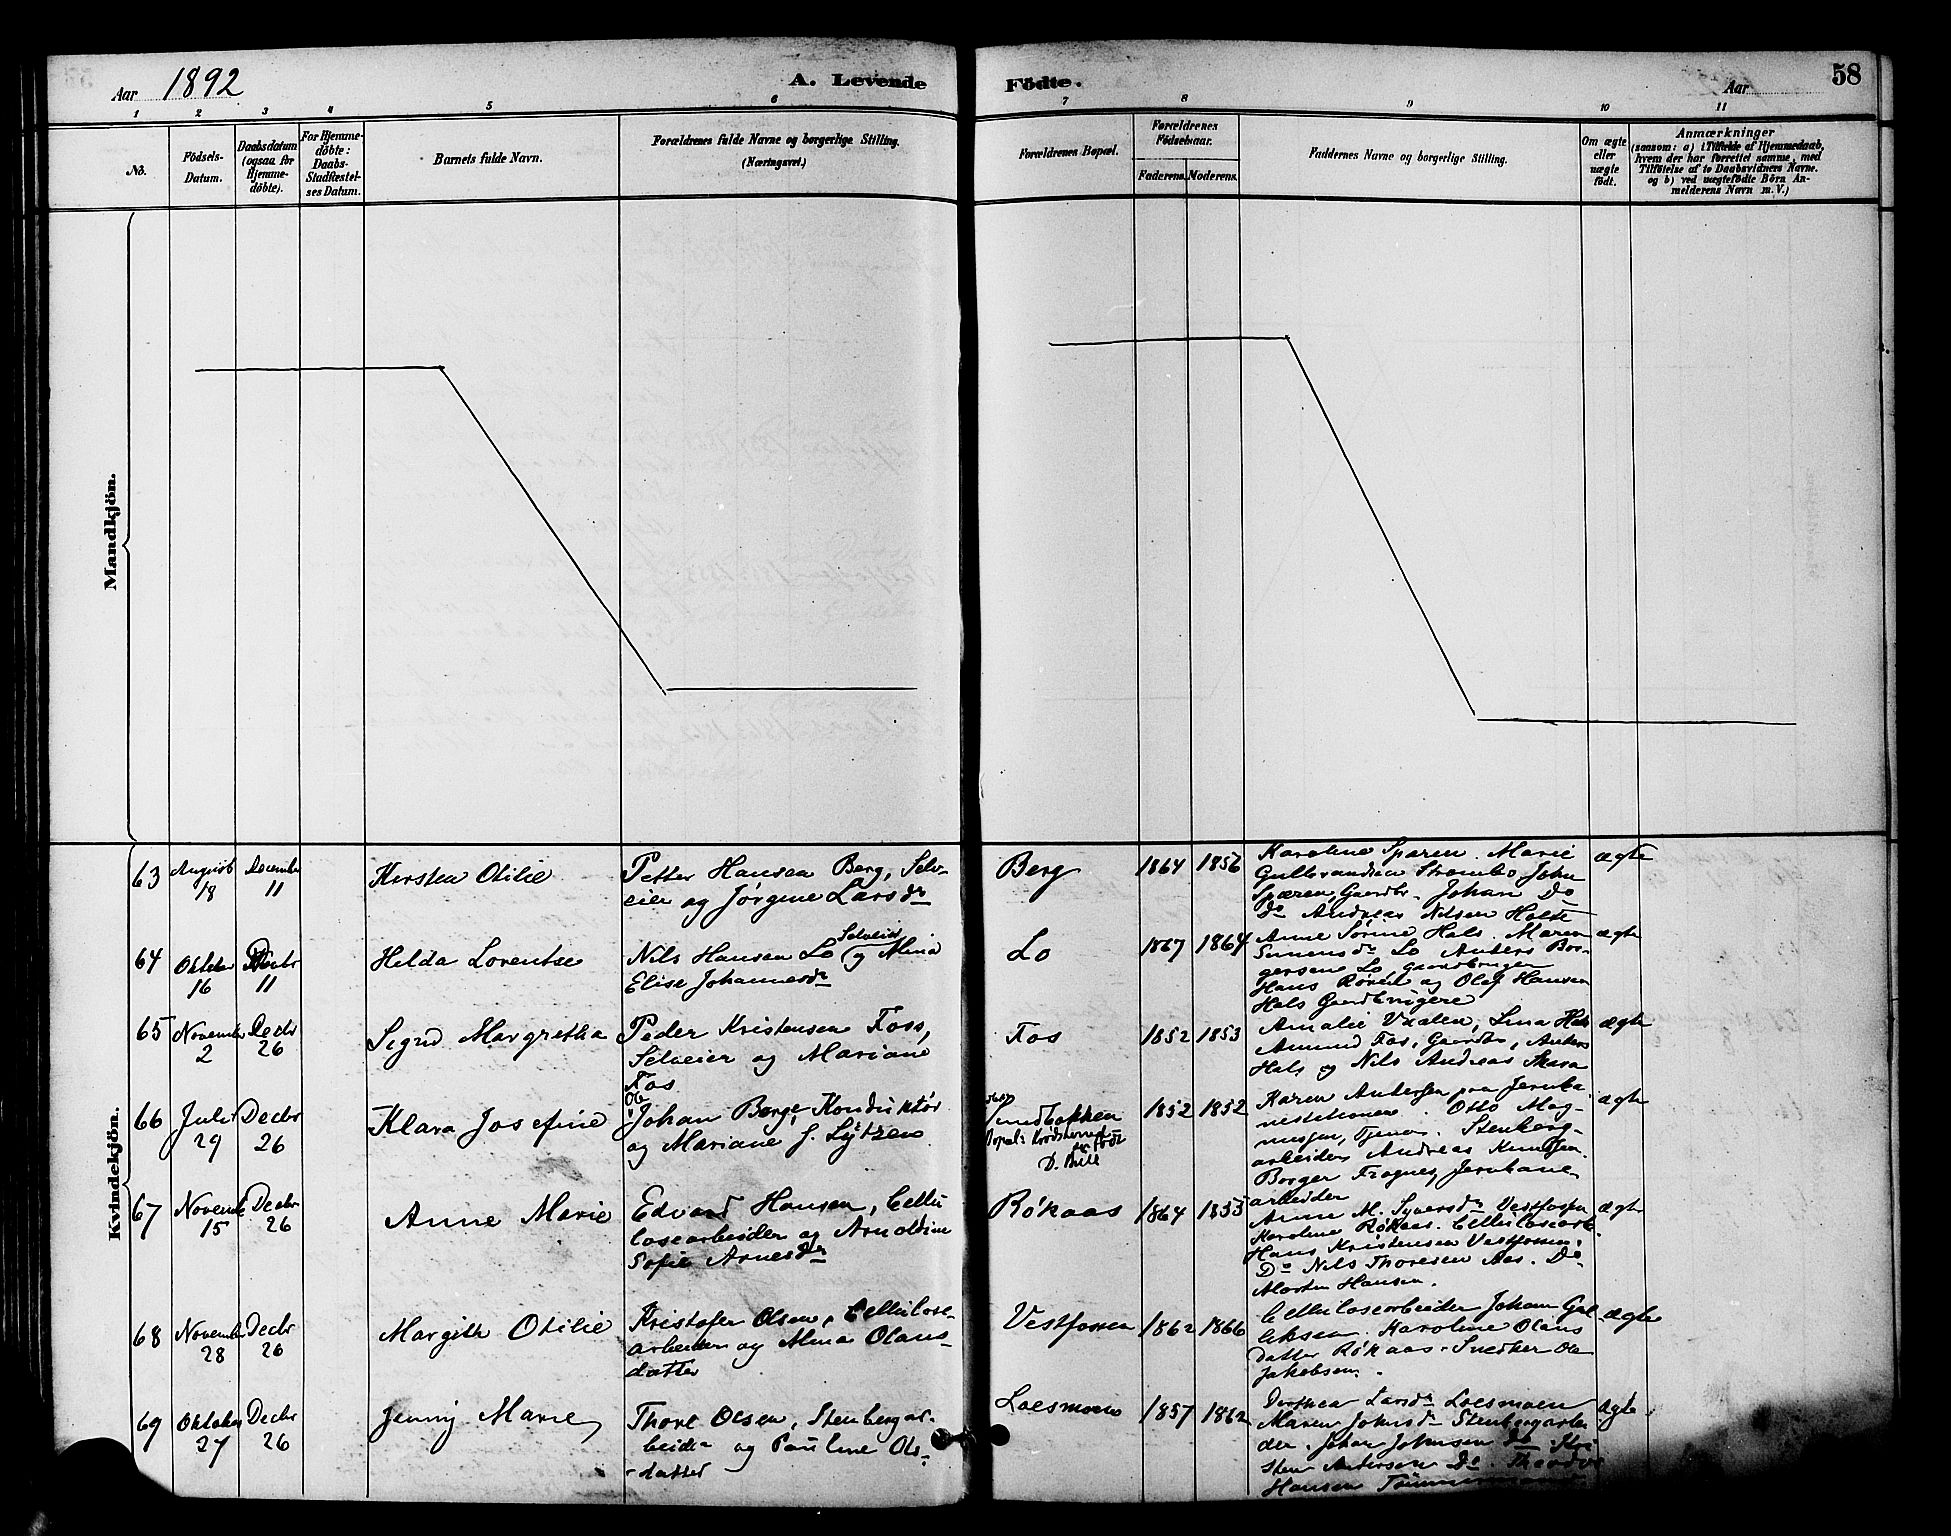 Aar 1892
A. Levende
Födte.
Aar
58
1 2 3 4 5 6 7 8 9 10 11
No.
Födsels-
Datum.
Daabsdatum
(ogsaa for
Hjemme-
döbte).
For Hjemme-
döbte:
Daabs-
Stadfæstel-
ses Datum.
Barnets fulde Navn.
Forældrenes fulde Navne og borgerlige Stilling.
(Næringsvei.)
Forældrenes Bopæl.
Forældrenes
Födselsaar.
Faderens. Moderens.
Faddernes Navne og borgerlige Stilling.
Om ægte
eller
uægte
födt.
Anmærkninger
(saasom: a) i Tilfælde af Hjemmedaab,
hvem der har forrettet samme, med
Tilföielse af to Daabsvidners Navne.
og b) ved uægtefödte Börn An-
melderens Navn m. V.)
Mandkjön.
Kvindekjön.
63
August
18
December
11
Kirsten Otilie
Petter Hansen Berg, Selv-
eier og Jørgine Larsdr
Berg
1864 1856
Karoline Sparen. Marie
Gulbrandsen Strombo, John
Spæren, Gaardbr. Johan Do
Do Andreas Nilsen Holte
ægte
64
Oktober
16
Decbr
11
Helda Lorentze
Nils Hansen Lo Selveier og Mina
Elise Johannesdr
Lo
1867 1864
Anne Sørine Hals. Maren
Simensdr Lo Anders Bor-
gersen Lo, Gaardbruger
Hans Røren og Olaf Hansen
Hals Gaardbrugere
ægte
65
November
2
Decbr
26
Sigrid Margretha
Peder Kristensen Foss,
Selveier og Mariane
Fos
Fos
1852 1853
Amalie Vaalen, Lina Hals
Amund Fos, Gaardbr, Anders
Hals og Nils Andreas Skara
ægte
66
Juli
29
Decbr
26
Klara Josefine
Johan Berge, Konduktør
og Mariane J. Lytzen
Sundbakken
1852 1852
Karen Andersen paa Jernba-
nestationen. Otto Mag-
nussen, Tjener. Stenberg-
arbeider Andreas Knudsen.
Borger Fragnes, Jernbane-
arbeider
ægte
67
November
15
Decbr
26
Anne Marie
Edvard Hansen, Cellu
losearbeider og Arnoldine
Sofie Arnesdr
Røkaas
1864 1855
Anne M. Syversdr Vestfossen
Karoline Røkaas. Cellulosearb.
Hans Kristensen Vestfossen.
Do Nils Thoresen Aas. Do
Morten Hansen.
ægte
68
November
28
Decbr
26
Margith Otilie
Kristofer Olsen, Cellulose-
arbeider og Mina Olaus-
datter
Vestfossen
1862 1866
Cellulosearbeider Johan Gul-
liksen. Karoline Olaus
datter Røkaas. Snedker Ole
Jakobsen.
ægte
69
Oktober
27
Decbr
26
Jenny Marie
Thore Olsen, Stenbergar-
beider og Pauline Ols-
datter
Loesmoen
1857 1862
Dorthea Larsdr Loesmoen
Maren Johnsdr Stenbergarbei
der. Johan Johnsen Do Kri
sten Andersen Do. Theodor
Hansen
ægte